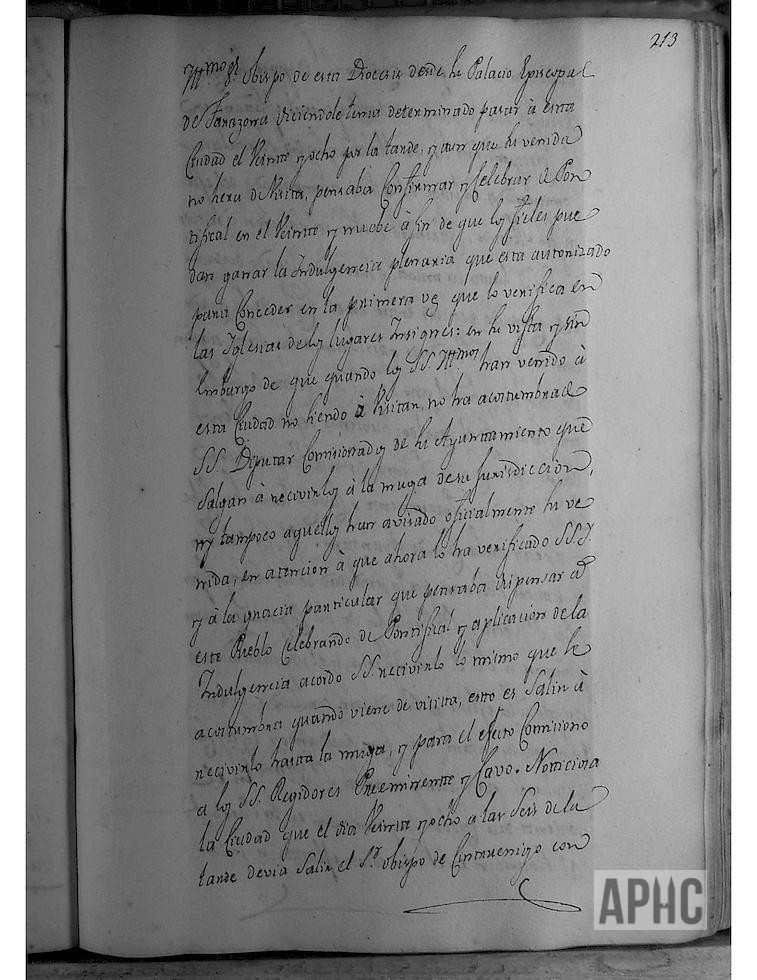 213
Yllmo Sr. Obispo de esta Diocesis desde su Palacio Episcopal
de Tarazona diciendole tenia determinado pasar à esta
Ciudad el veinte y ocho por la tarde, y aun que su venida
no hera de visita, pensaba Confirmar y Celebrar de Pon
tifical en el veinte y nuebe à fin de que los fieles pue
dan ganar la Indulgencia plenaria que esta autorizado
para Conceder en la primera vez que lo verifica en
las Iglesias de los lugares Insignes: en su vista y sin
embargo de que quando los SS. Yllmos han venido à
esta Ciudad no siendo à visitar, no ha acostumbrado
SS. Diputar Comisionados de su Ayuntamiento que
salgan à recivirlos à la muga de su Jurisdiccion,
ny tampoco aquellos han avisado oficialmente su ve
nida, en atencion à que ahora lo ha verificado SSY.
y à la gracia particular que pensaba dispensar à
este Pueblo Celebrando de Pontifical y aplicacion de la
Indulgencia acordo SS. recivirlo lo mismo que se
acostumbra quando viene de visita, esto es Salir à
recivirlo hasta la muga, y para el efecto Comisiono
a los SS. Regidores Preeminente y Cavo. Noticiosa
la Ciudad que el dia veinte y ocho a las Seis de la
tarde devia Salir el Sr. Obispo de Cintruenigo con
APHC